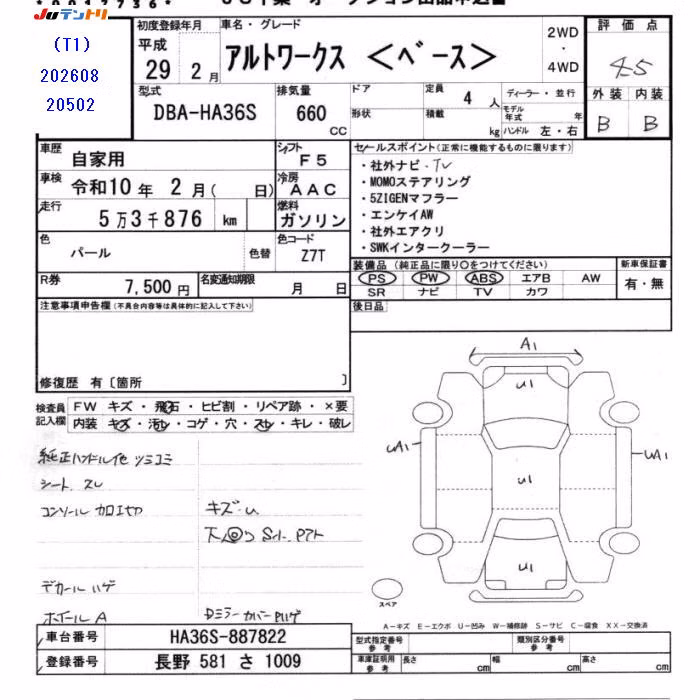 JUテントリ
(T1)
202608
20502
初度登録年月
平成
29 2 月
車名・グレード
アルトワークス <ベース>
2WD
・
4WD
評価点
4.5
外装 内装
B B
型式
DBA-HA36S
排気量
660
CC
ドア
形状
定員
4 人
積載
kg
ディーラー・並行
モデル年式 年
ハンドル 左・右
車歴
自家用
シフト
F5
車検
令和10年 2月( 日)
冷房
AAC
走行
5万3千876 km
燃料
ガソリン
色
パール
色替
色コード
Z7T
R券
7,500 円
名変通知期限
月 日
セールスポイント(正常に機能するものに限ります)
・社外ナビ・TV
・MOMOステアリング
・5ZIGENマフラー
・エンケイAW
・社外エアクリ
・SWKインタークーラー
装備品 (純正品に限り○をつけてください)
PS PW ABS エアB AW
SR ナビ TV カワ
新車保証書
有・無
後日品
注意事項申告欄(不具合内容等は具体的に記入して下さい)
修復歴 有〔箇所 〕
検査員記入欄
FW キズ・飛石・ヒビ割・リペア跡・×要
内装 キズ・汚レ・コゲ・穴・スレ・キレ・破レ
純正ハンドル他 ツミコミ
シート スレ
コンソール 加工セヤ
キズ・U
デカール ハゲ
ホイール A
Dミラーカバー Pハゲ
A1
U1
UA1
U1
UA1
U1
スペア
A−キズ E−エクボ U−凹み W−補修跡 S−サビ C−腐食 XX−交換済
車台番号
HA36S-887822
登録番号
長野 581 さ 1009
型式指定番号
参考
類別区分番号
参考
車庫証明用
参考
長さ cm
幅 cm
高さ cm